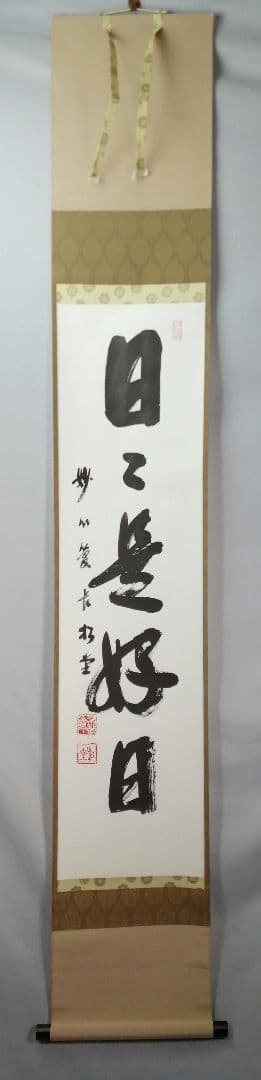 日々是好日
妙心管長松堂